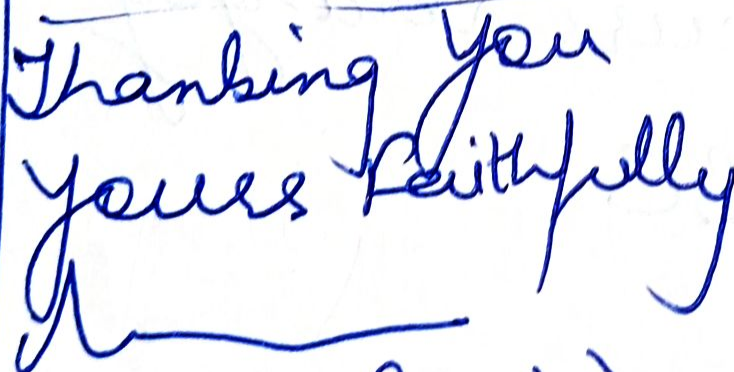 Thanking You
Yours Faithfully